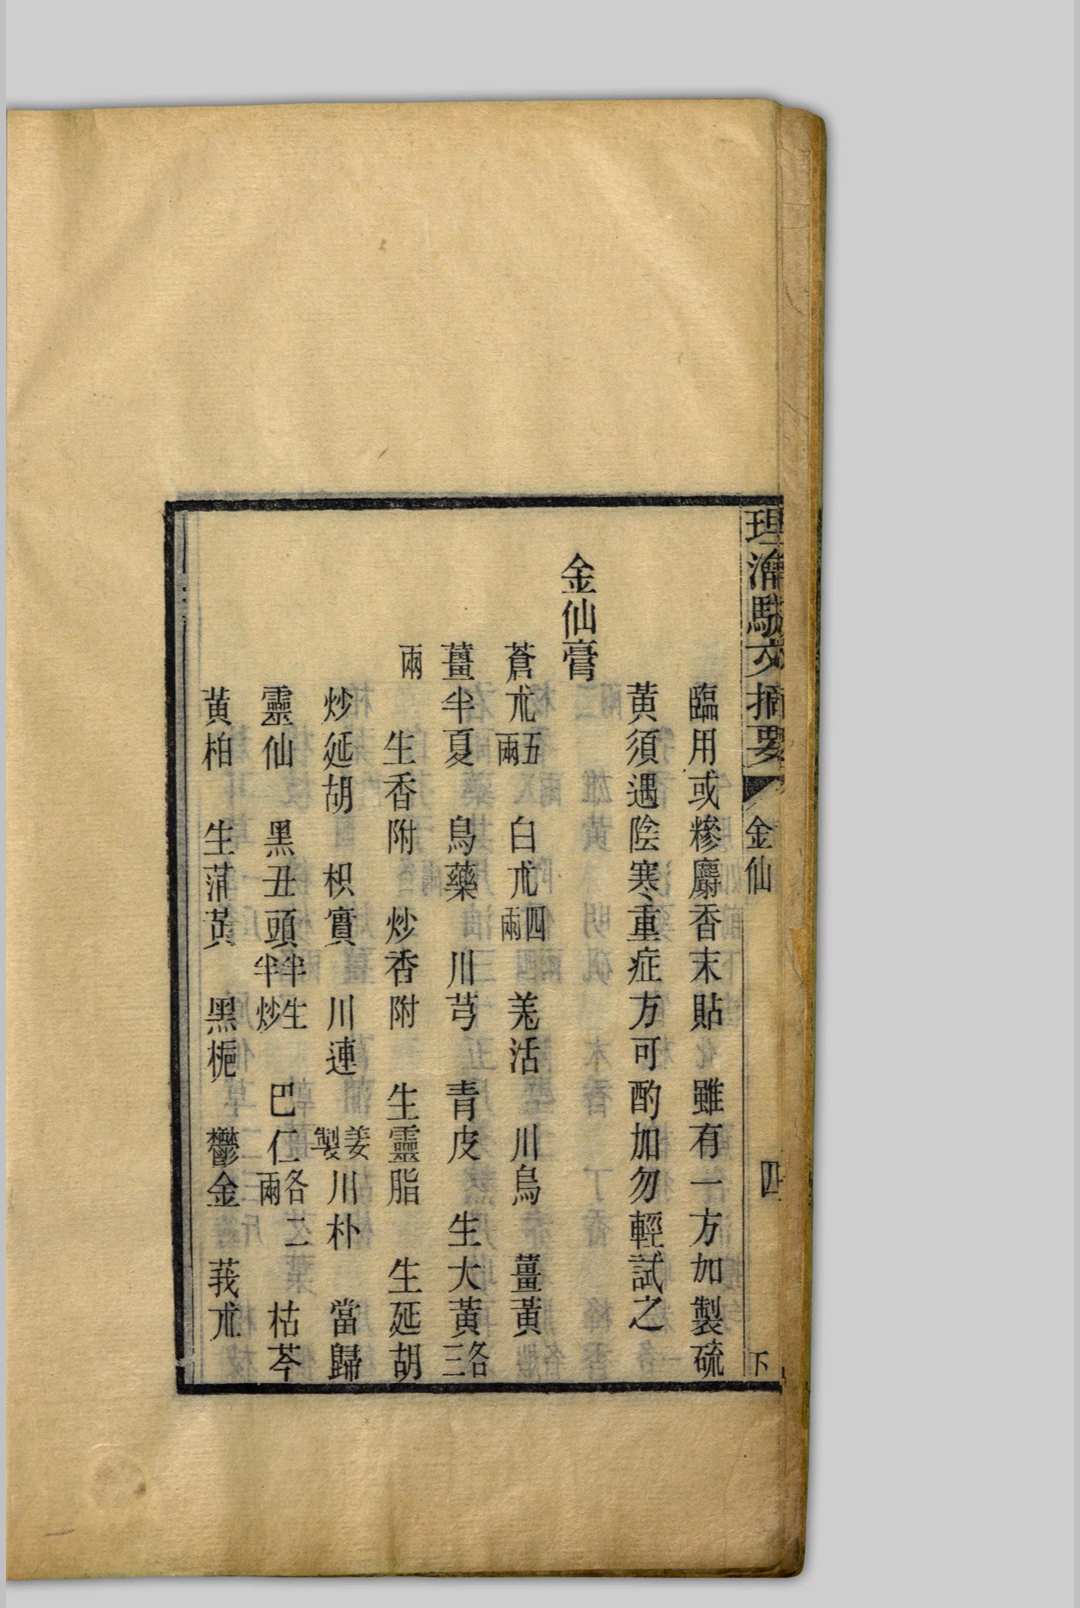 理瀹駢文摘要 金仙 四 下
臨用或糝麝香末貼 雖有一方加製硫
黃須遇陰寒重症方可酌加勿輕試之
金仙膏
蒼朮五兩 白朮四兩 羌活 川烏 薑黃
薑半夏 烏藥 川芎 青皮 生大黃各三
兩 生香附 炒香附 生靈脂 生延胡
炒延胡 枳實 川連姜製 川朴 當歸
靈仙 黑丑頭半生半炒 巴仁各二兩 枯芩
黃柏 生蒲黃 黑梔 鬱金 莪朮